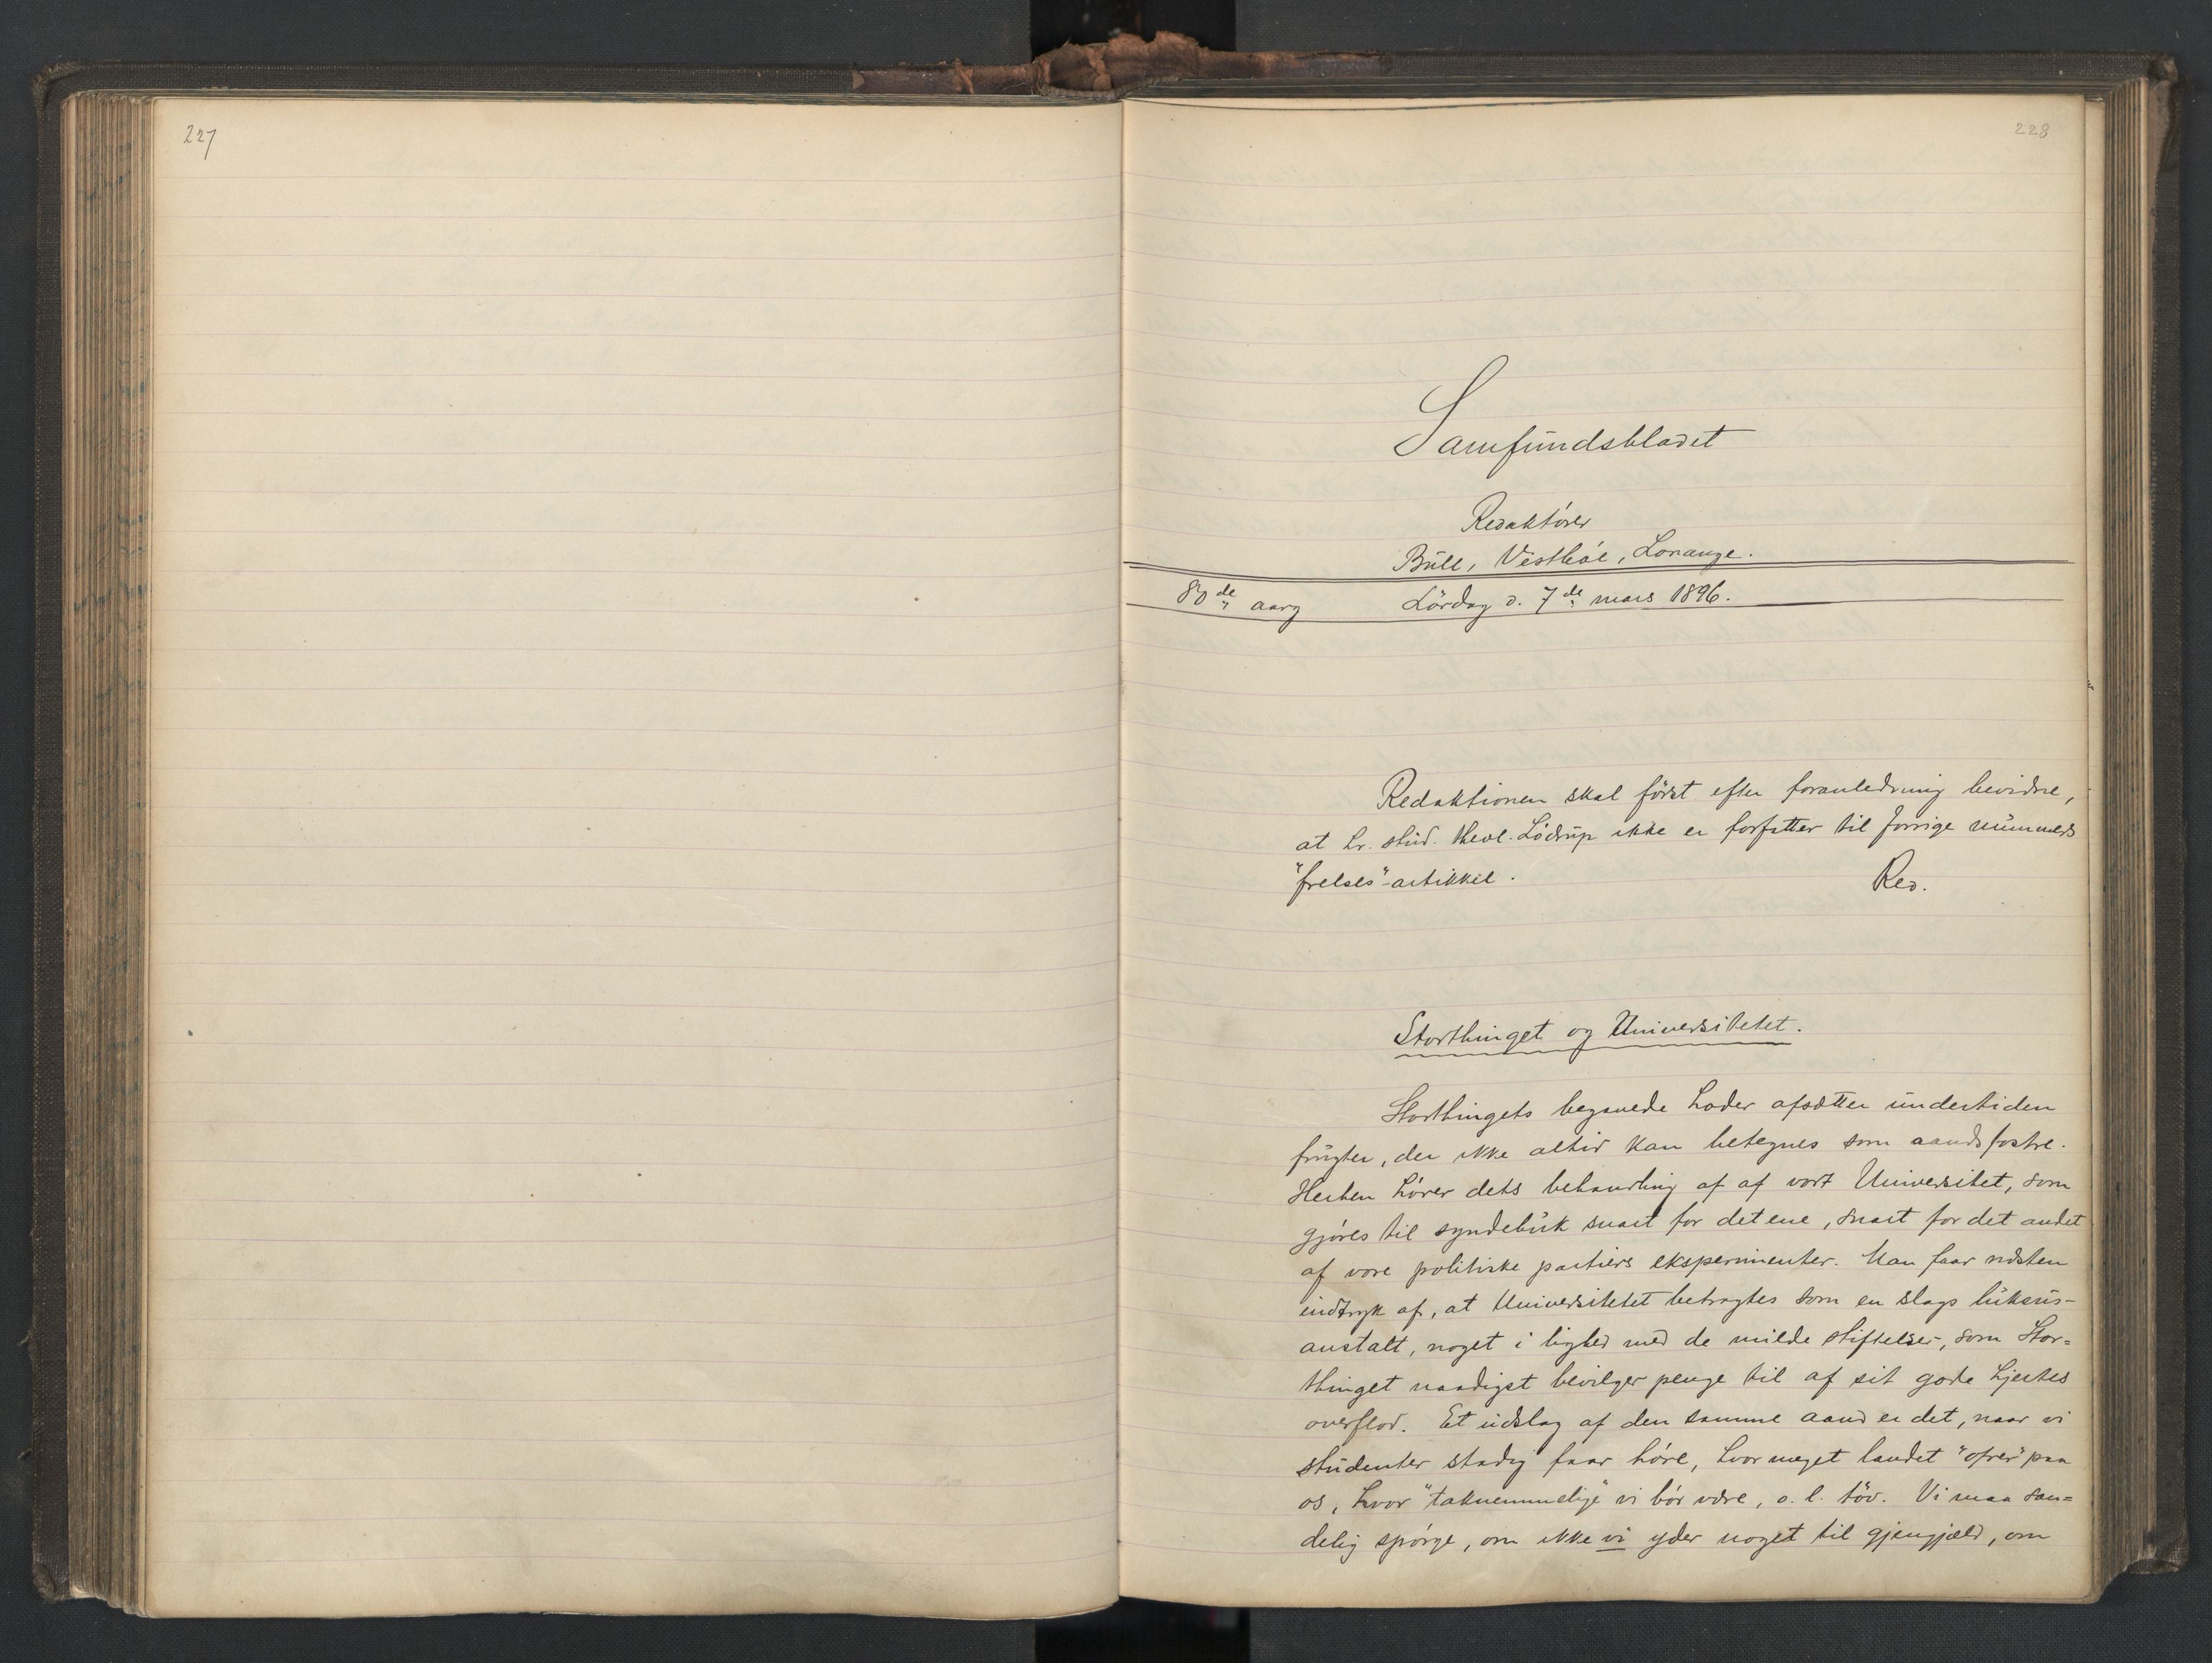 227
228
Samfundsbladet
Redaktörer
Bull, Vestböe, Lorange.
80de aarg Lördag d. 7de mars 1896.
Redaktionen skal först efter foranledning bevidne,
at hr. stud. theol. Lödrup ikke er forfatter til forrige nummers
"frelses"-artikkel.
Red.
Storthinget og Universitetet.
Storthingets begavede hoder afsætter undertiden
frugter, der ikke altid kan betegnes som aandsfostre.
Herhen hörer dets behandling af af vort Universitet, som
gjöres til syndebuk snart for det ene, snart for det andet
af vore politiske partiers eksperimenter. Man faar næsten
indtryk af, at Universitetet betragtes som en slags luksus-
anstalt, noget i lighed med de milde stiftelser, som Stor=
thinget naadigst bevilger penge til af sit gode hjertes
overflod. Et udslag af den samme aand er det, naar vi
studenter stadig faar höre, hvor meget landet "ofrer" paa
os, hvor "taknemmelige" vi bör være, o. l. töv. Vi maa san=
delig spörge, om ikke vi yder noget til gjengjæld, om